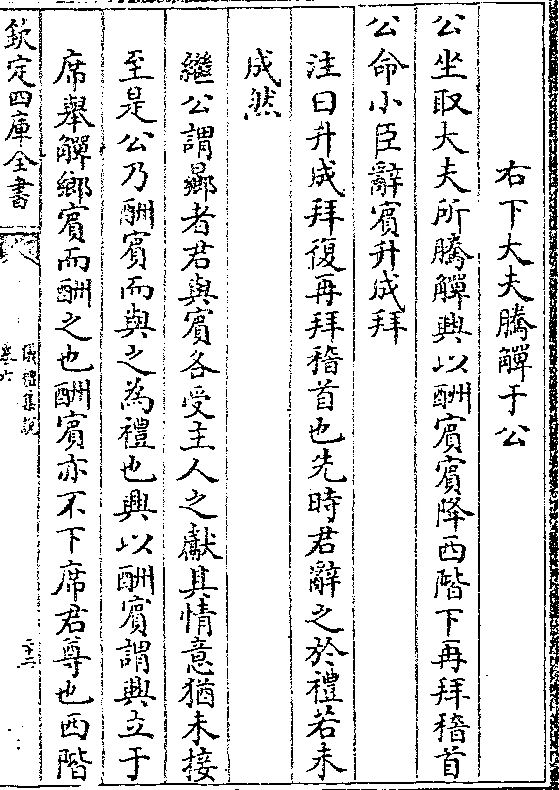 右下大夫騰觶于公
公坐取大夫所騰觶興以酬賓賓降西階下再拜稽首
公命小臣辭賓升成拜
注曰升成拜復再拜稽首也先時君辭之於禮若未
成然
繼公謂曏者君與賓各受主人之獻其情意猶未接
至是公乃酬賓而與之為禮也興以酬賓謂興立于
席舉觶鄉賓而酬之也酬賓亦不下席君尊也西階
欽定四庫全書
儀禮集說
卷六